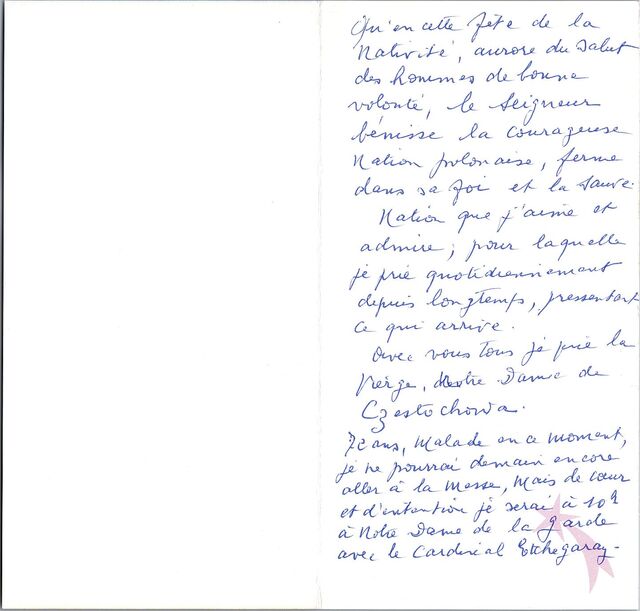 Qu'en cette fête de la
Nativité, aurore du salut
des hommes de bonne
volonté, le Seigneur
bénisse la courageuse
Nation polonaise, ferme
dans sa foi et la sauve.
Nation que j'aime et
admire, pour laquelle
je prie quotidiennement
depuis longtemps, pressentant
ce qui arrive.
Avec vous tous je prie la
Vierge, Notre Dame de
Czestochowa.
72 ans, malade en ce moment,
je ne pourrai demain encore
aller à la Messe, mais de cœur
et d'intention je serai à 10h
à Notre Dame de la garde
avec le Cardinal Etchegaray-